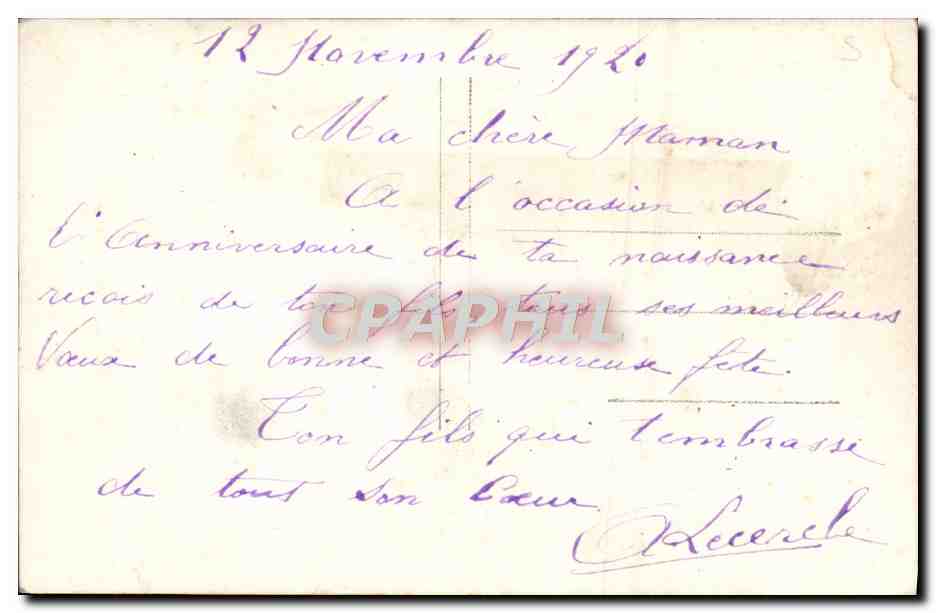 12 Novembre 1920
Ma chère Maman
A l'occasion de
l'Anniversaire de ta naissance
recois de ton fils tous ses meilleurs
CPAPHIL
Vœux de bonne et heureuse fête.
Ton fils qui t'embrasse
de tout son Cœur